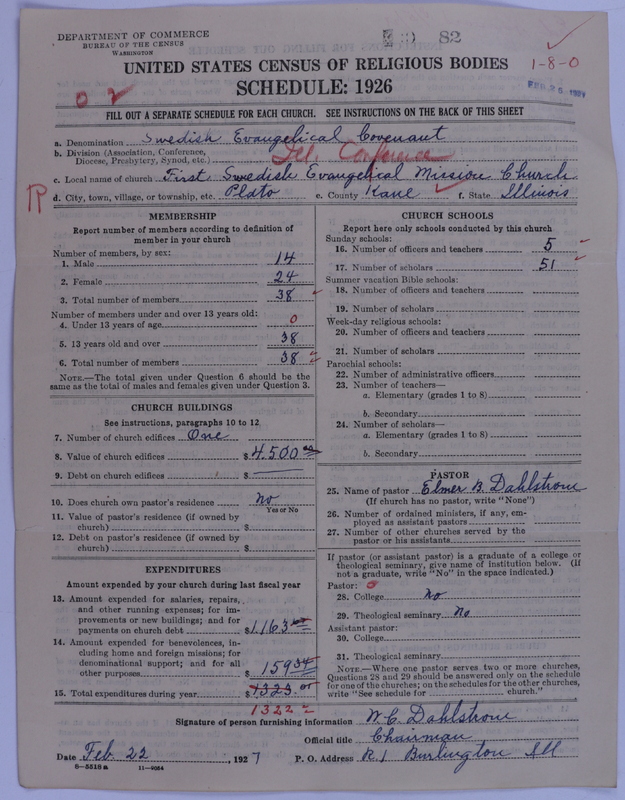 DEPARTMENT OF COMMERCE
BUREAU OF THE CENSUS
WASHINGTON
82
UNITED STATES CENSUS OF RELIGIOUS BODIES
1-8-0
SCHEDULE: 1926
FILL OUT A SEPARATE SCHEDULE FOR EACH CHURCH. SEE INSTRUCTIONS ON THE BACK OF THIS SHEET
a. Denomination Swedish Evangelical Covenant
b. Division (Association, Conference, Diocese, Presbytery, Synod, etc.) Ill. Conference
c. Local name of church First Swedish Evangelical Mission Church
d. City, town, village, or township, etc. Plato e. County Kane f. State Illinois
MEMBERSHIP
Report number of members according to definition of member in your church
Number of members, by sex:
1. Male 14
2. Female 24
3. Total number of members 38
Number of members under and over 13 years old:
4. Under 13 years of age 0
5. 13 years old and over 38
6. Total number of members 38
NOTE.—The total given under Question 6 should be the same as the total of males and females given under Question 3.
CHURCH BUILDINGS
See instructions, paragraphs 10 to 12
7. Number of church edifices One
8. Value of church edifices $ 4500
9. Debt on church edifices $
10. Does church own pastor's residence No
Yes or No
11. Value of pastor's residence (if owned by church) $
12. Debt on pastor's residence (if owned by church) $
EXPENDITURES
Amount expended by your church during last fiscal year
13. Amount expended for salaries, repairs, and other running expenses; for improvements or new buildings; and for payments on church debt $1163
14. Amount expended for benevolences, including home and foreign missions; for denominational support; and for all other purposes $ 159
15. Total expenditures during year $ 1323
1322
CHURCH SCHOOLS
Report here only schools conducted by this church
Sunday schools:
16. Number of officers and teachers 5
17. Number of scholars 51
Summer vacation Bible schools:
18. Number of officers and teachers
19. Number of scholars
Week-day religious schools:
20. Number of officers and teachers
21. Number of scholars
Parochial schools:
22. Number of administrative officers
23. Number of teachers—
a. Elementary (grades 1 to 8)
b. Secondary
24. Number of scholars—
a. Elementary (grades 1 to 8)
b. Secondary
PASTOR
25. Name of pastor Elmer B. Dahlstrom
(If church has no pastor, write "None")
26. Number of ordained ministers, if any, employed as assistant pastors
27. Number of other churches served by the pastor or his assistants
If pastor (or assistant pastor) is a graduate of a college or theological seminary, give name of institution below. (If not a graduate, write "No" in the space indicated.)
Pastor:
28. College No
29. Theological seminary No
Assistant pastor:
30. College
31. Theological seminary
NOTE.—Where one pastor serves two or more churches, Questions 28 and 29 should be answered only on the schedule for one of the churches; on the schedules for the other churches, write "See schedule for church."
Signature of person furnishing information W. C. Dahlstrom
Official title Chairman
Date Feb 22, 1927 P. O. Address R1 Burlington Ill
8-5518a 11-9664